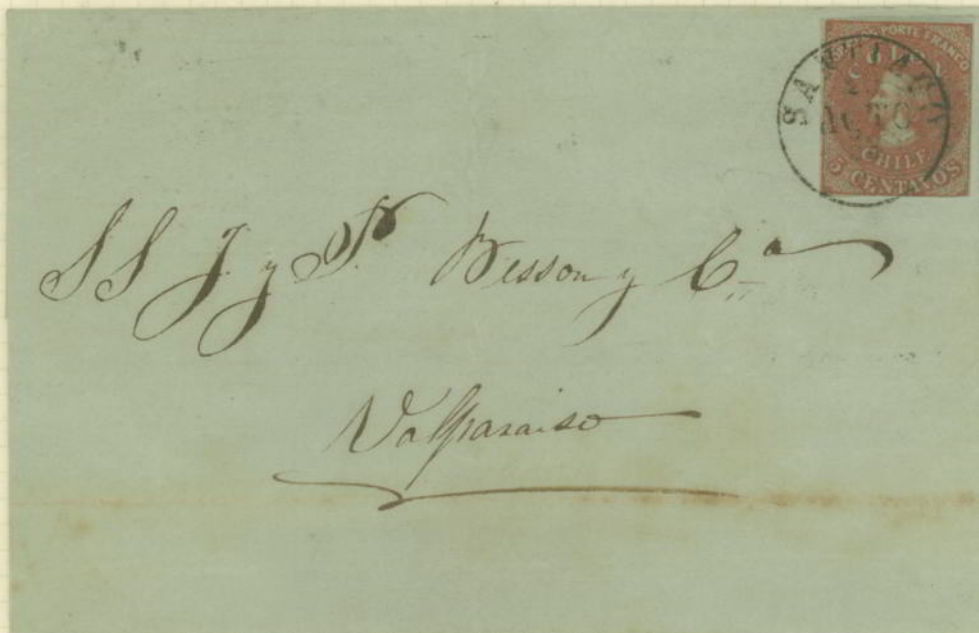 PORTE FRANCO
COLON
SANTIAGO
AGTO
CHILE
5 CENTAVOS
SS J. y P. Wesson y Cª
Valparaiso